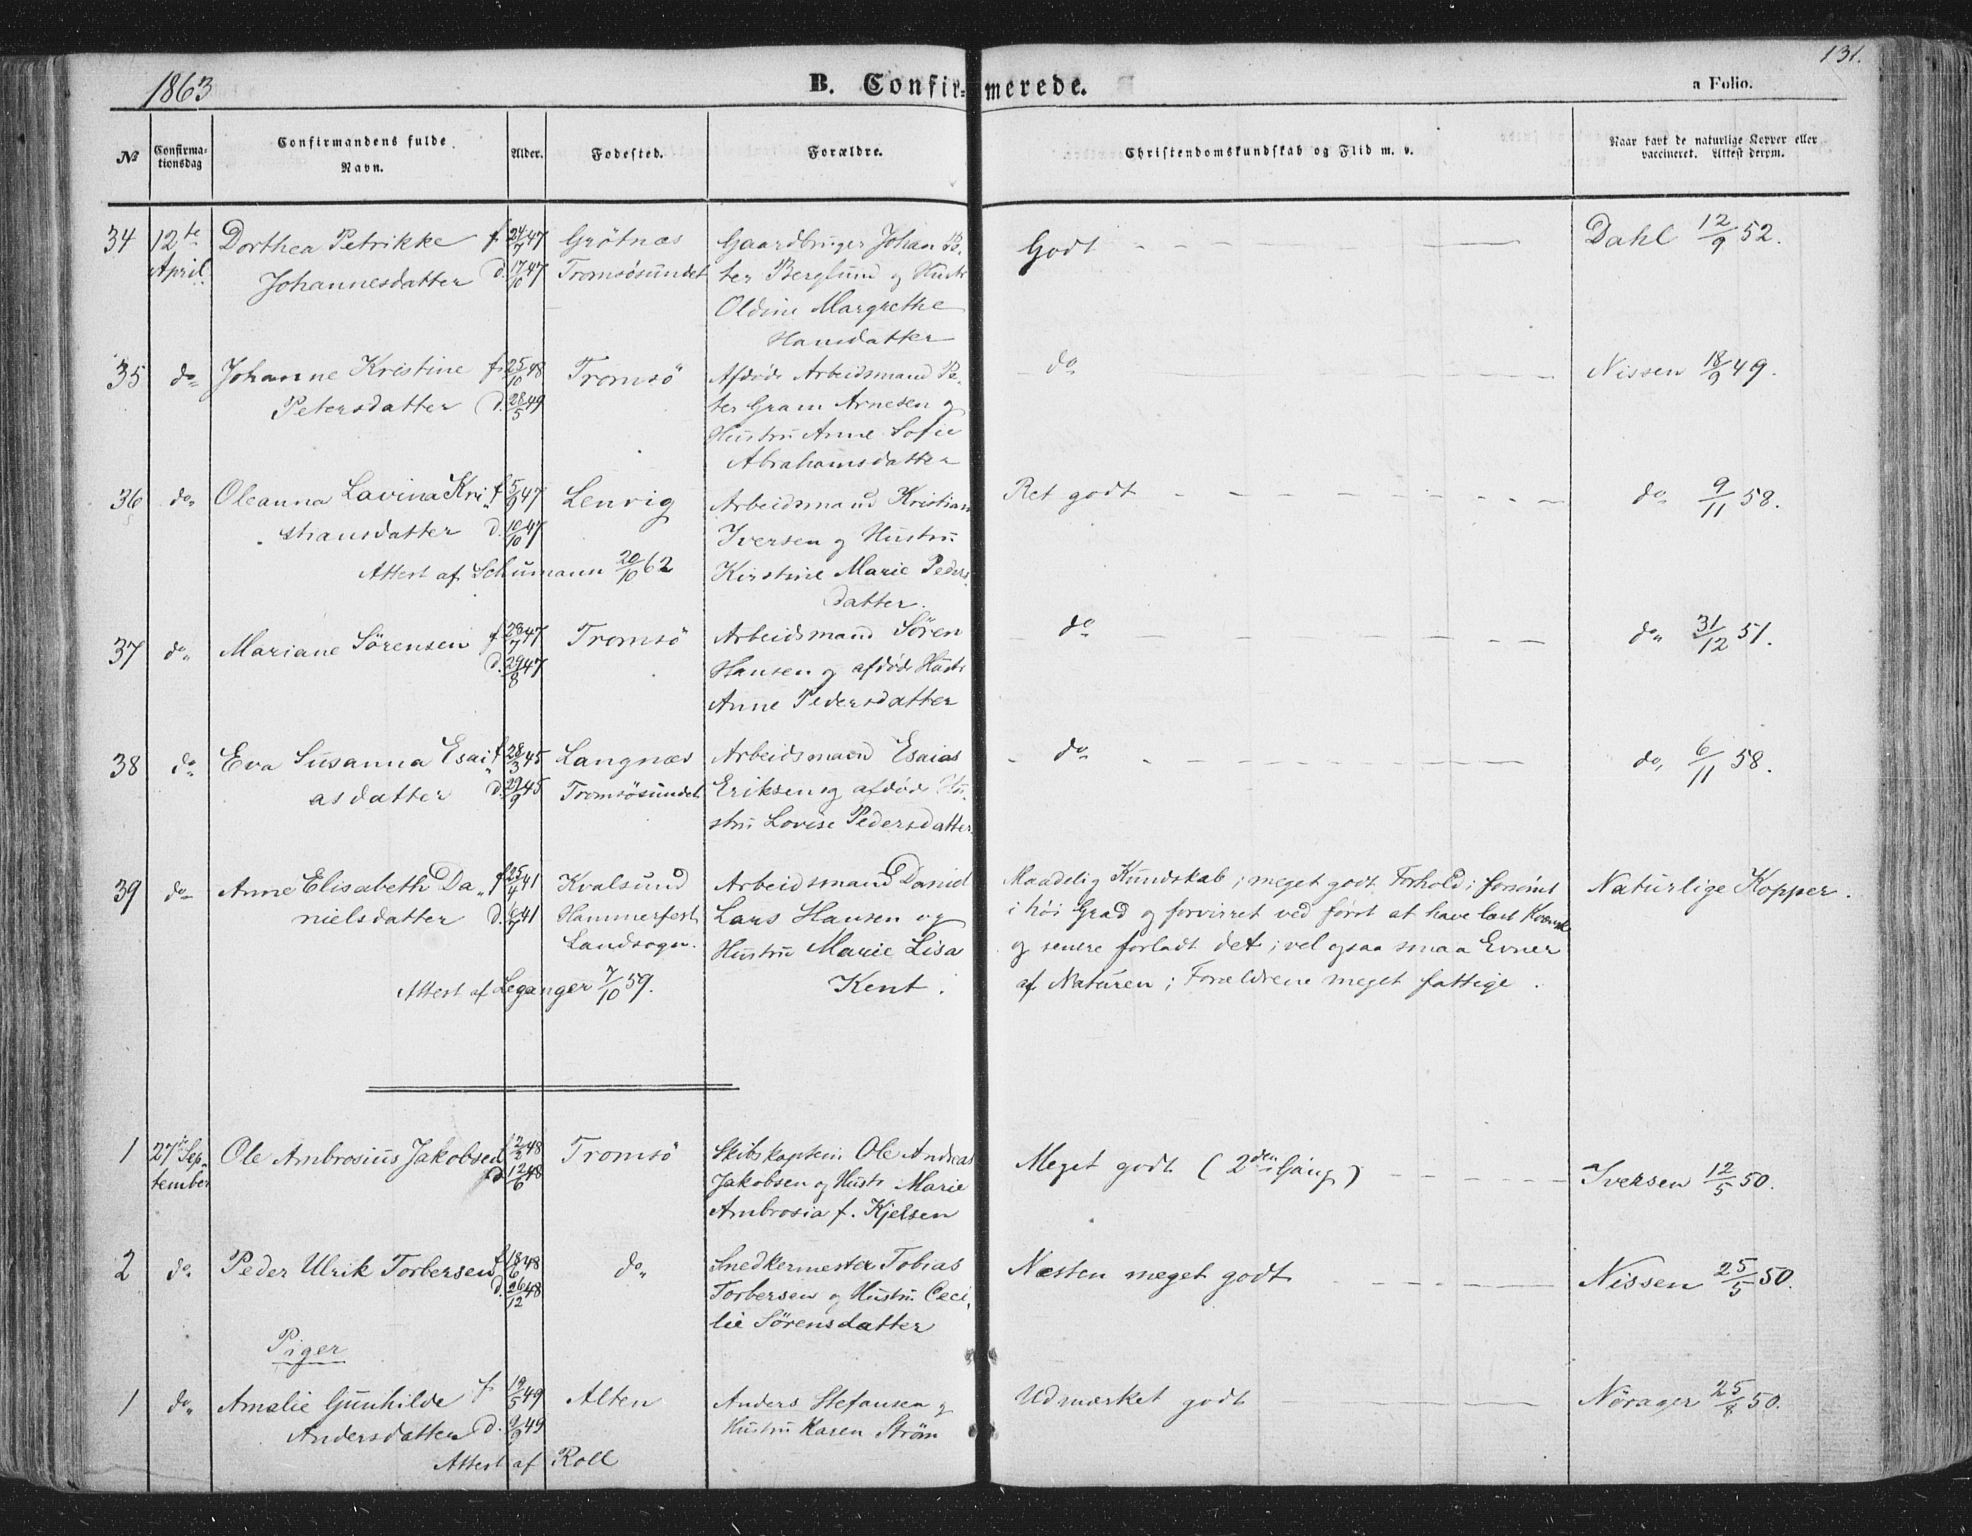 1863
B. Confirmerede.
131.
a Folio.
№
Confirma-
tionsdag
Confirmandens fulde
Navn.
Alder.
Fødested.
Forældre.
Christendomskundskab og Flid m. v.
Naar havt de naturlige Kopper eller
vaccineret. Attest derom.
34 12te Dorthea Petrikke f 24/7 47 Grötnæs Gaardbruger Johan P- Godt Dahl 12/9 52.
April Johannesdatter d. 17/10 47 Tromsösundet ter Berglund og Hustr
Oldine Margrethe
Hansdatter
35 do Johanne Kristine f 25/10 48 Tromsö Afdöde Arbeidsmand Pe- do Nissen 18/9 49.
Petersdatter d. 28/5 49 ter Gram Arnesen og
Hustru Anne Sofie
Abrahamsdatter
36 do Oleanna Lavina Kri- f 5/9 47 Lenvig Arbeidsmand Kristian Ret godt do 9/11 58.
stiansdatter d. 10/10 47 Iversen og Hustru
Attest af Schumann 20/10 62 Kirstine Marie Peders-
datter.
37 do Mariane Sørensen f 28/7 47 Tromsö Arbeidsmand Sören do do 31/12 51.
d. 29/8 47 Hansen og afdöde Hustr
Anne Pedersdatter
38 do Eva Susanna Esai- f 28/3 45 Langnæs Arbeidsmand Esaias do do 6/11 58.
asdatter d. 29/9 45 Tromsösundet Eriksen og afdöde Hu-
stru Lovise Pedersdatter
39 do Anne Elisabeth Da- f 25/4 41 Kvalsund Arbeidsmand Daniel Maadelig Kundskab; meget godt Forhold; forsömt Naturlige Kopper.
nielsdatter d. 41 Hammerfest Lars Hansen og i höi Grad og forvirret ved först at have læst Kvænsk
Landsogn. Hustru Marie Lisa og senere forladt det; vel ogsaa smaa Evner
Attest af Leganger 7/10 59. Kent. af Naturen; Forældrene meget fattige.
1 27de Sep- Ole Ambrosius Jakobsen f 2/3 48 Tromsö Skibskaptein Ole Andreas Meget godt (2den Gang) Iversen 12/5 50.
tember d. 12/6 48 Jakobsen og Hustr Marie
Ambrosia f. Kjelsen
2 do Peder Ulrik Torbersen f 18/6 48 do Snedkermester Tobias Næsten meget godt Nissen 25/5 50.
d. 26/12 48 Torbersen og Hustru Ceci-
lie Sörensdatter
Piger
1 do Amalie Gunhilde f 19/5 49 Alten Anders Stefansen og Udmærket godt Nörager 25/8 50.
Andersdatter d. 2/9 49 Hustru Karen Ström
Attest af Roll